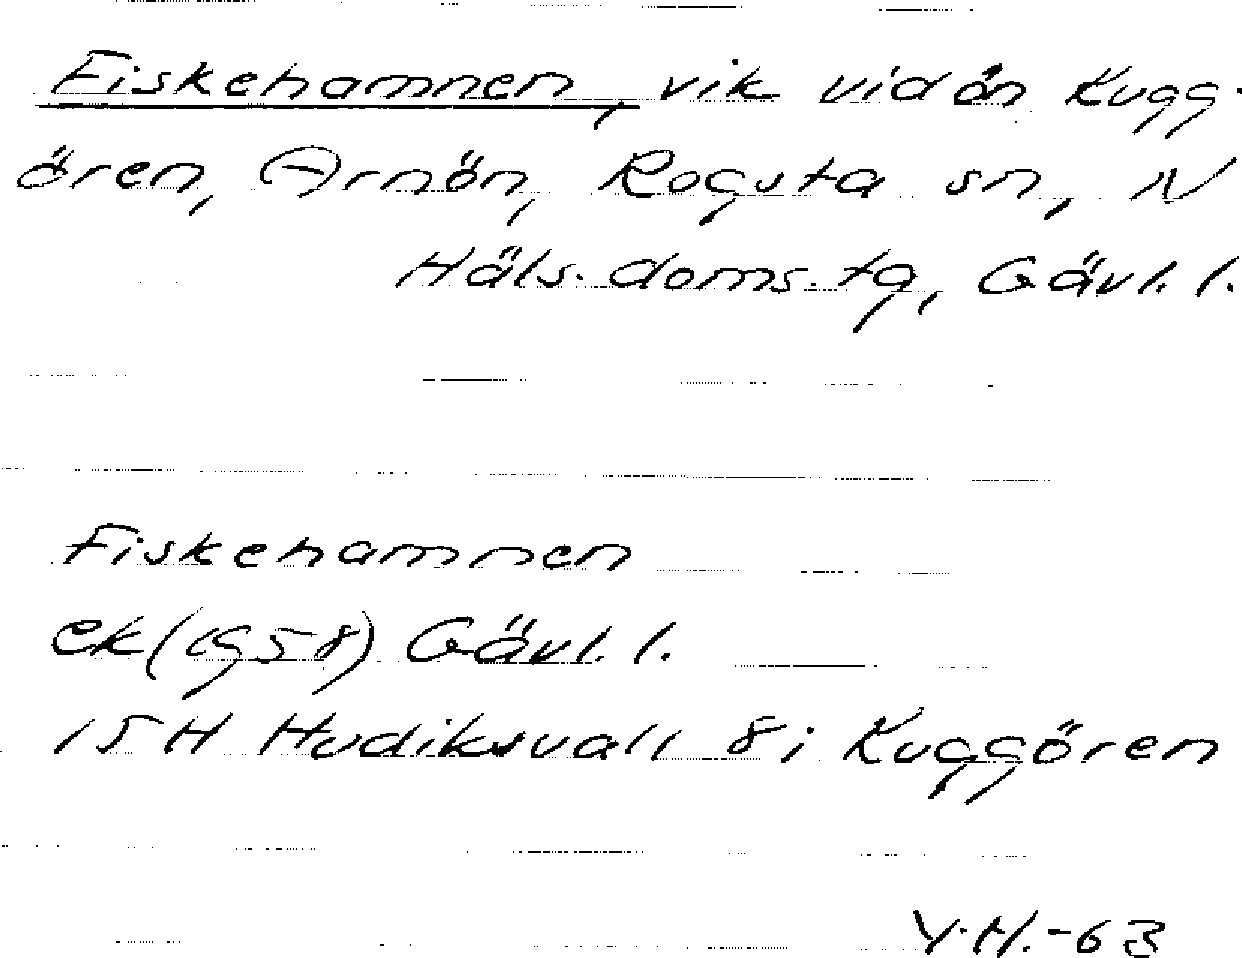 Fiskehamnen, vik vid ön Kugg-
ören, Arnön, Rogsta sn, N
Häls. doms. tg, Gävl. l.
Fiskehamnen
ek (1958) Gävl. l.
15H Hudiksvall 8i Kuggören
Y.H.-63